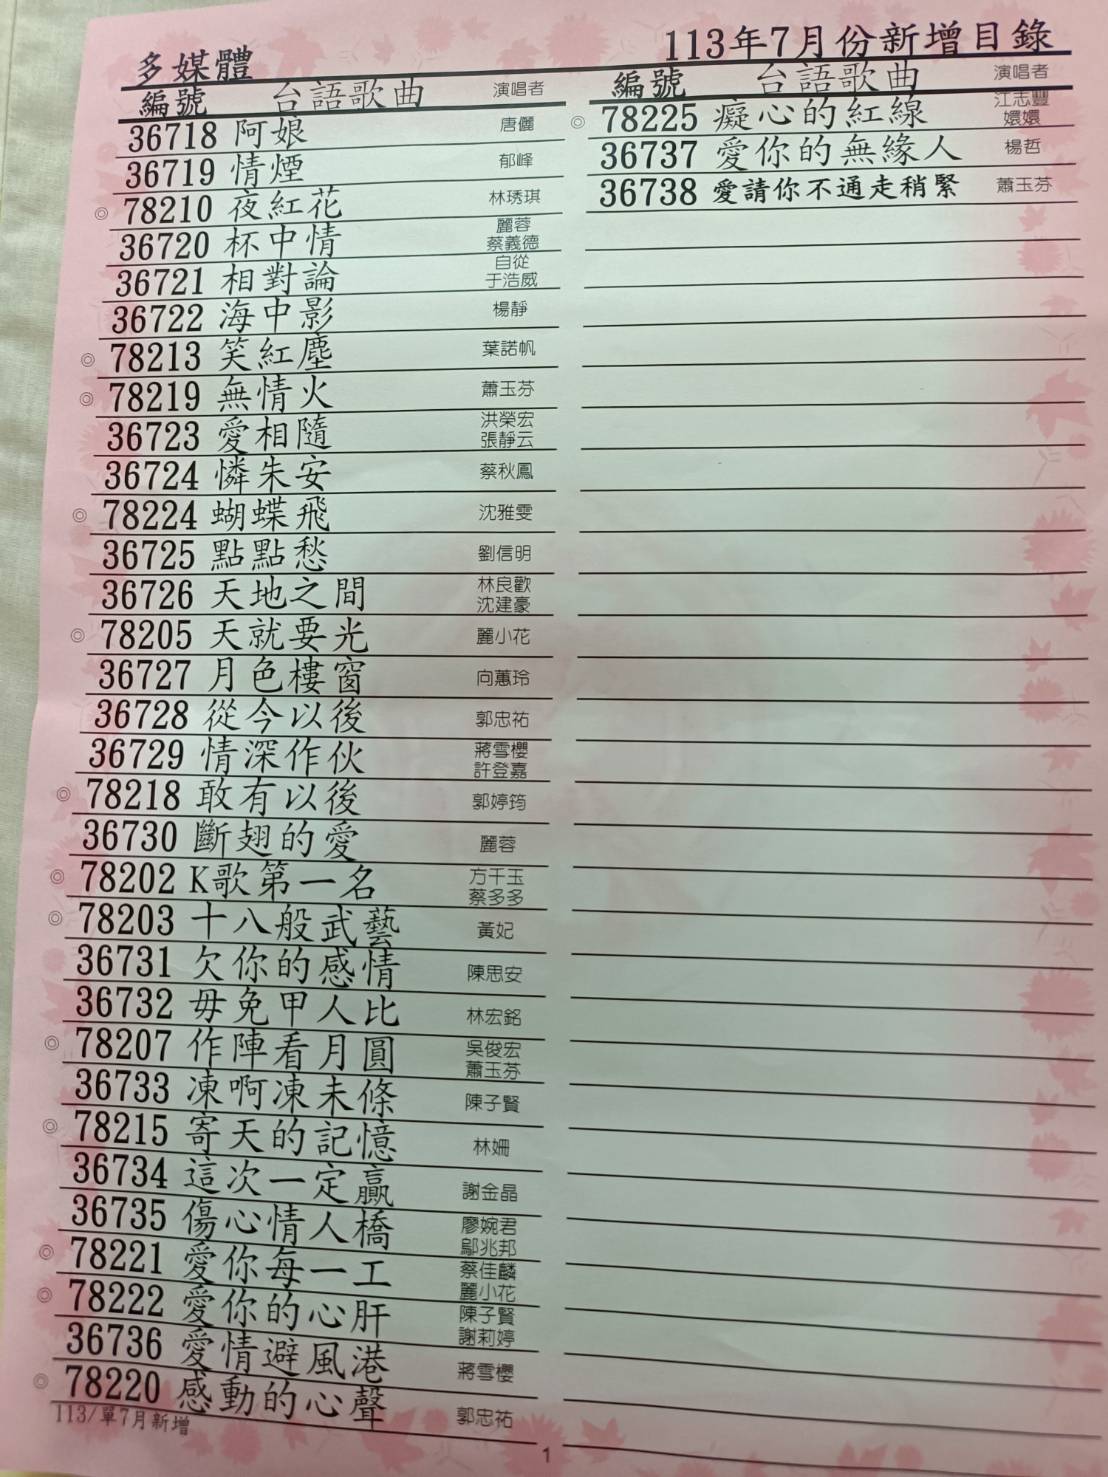 多媒體
113年7月份新增目錄
編號 台語歌曲 演唱者
36718 阿娘 唐儷
36719 情煙 郁峰
◎ 78210 夜紅花 林琇琪
36720 杯中情 麗蓉 蔡義德
36721 相對論 自從 于浩威
36722 海中影 楊靜
◎ 78213 笑紅塵 葉諾帆
◎ 78219 無情火 蕭玉芬
36723 愛相隨 洪榮宏 張靜云
36724 憐朱安 蔡秋鳳
◎ 78224 蝴蝶飛 沈雅雯
36725 點點愁 劉信明
36726 天地之間 林良歡 沈建豪
◎ 78205 天就要光 麗小花
36727 月色樓窗 向蕙玲
36728 從今以後 郭忠祐
36729 情深作伙 蔣雪櫻 許登嘉
◎ 78218 敢有以後 郭婷筠
36730 斷翅的愛 麗蓉
◎ 78202 K歌第一名 方千玉 蔡多多
◎ 78203 十八般武藝 黃妃
36731 欠你的感情 陳思安
36732 毋免甲人比 林宏銘
◎ 78207 作陣看月圓 吳俊宏 蕭玉芬
36733 凍啊凍未條 陳子賢
◎ 78215 寄天的記憶 林姍
36734 這次一定贏 謝金晶
36735 傷心情人橋 廖婉君 鄔兆邦
◎ 78221 愛你每一工 蔡佳麟 麗小花
◎ 78222 愛你的心肝 陳子賢 謝莉婷
36736 愛情避風港 蔣雪櫻
◎ 78220 感動的心聲 郭忠祐
編號 台語歌曲 演唱者
◎ 78225 癡心的紅線 江志豐 嬛嬛
36737 愛你的無緣人 楊哲
36738 愛請你不通走稍緊 蕭玉芬
113/單7月新增
1